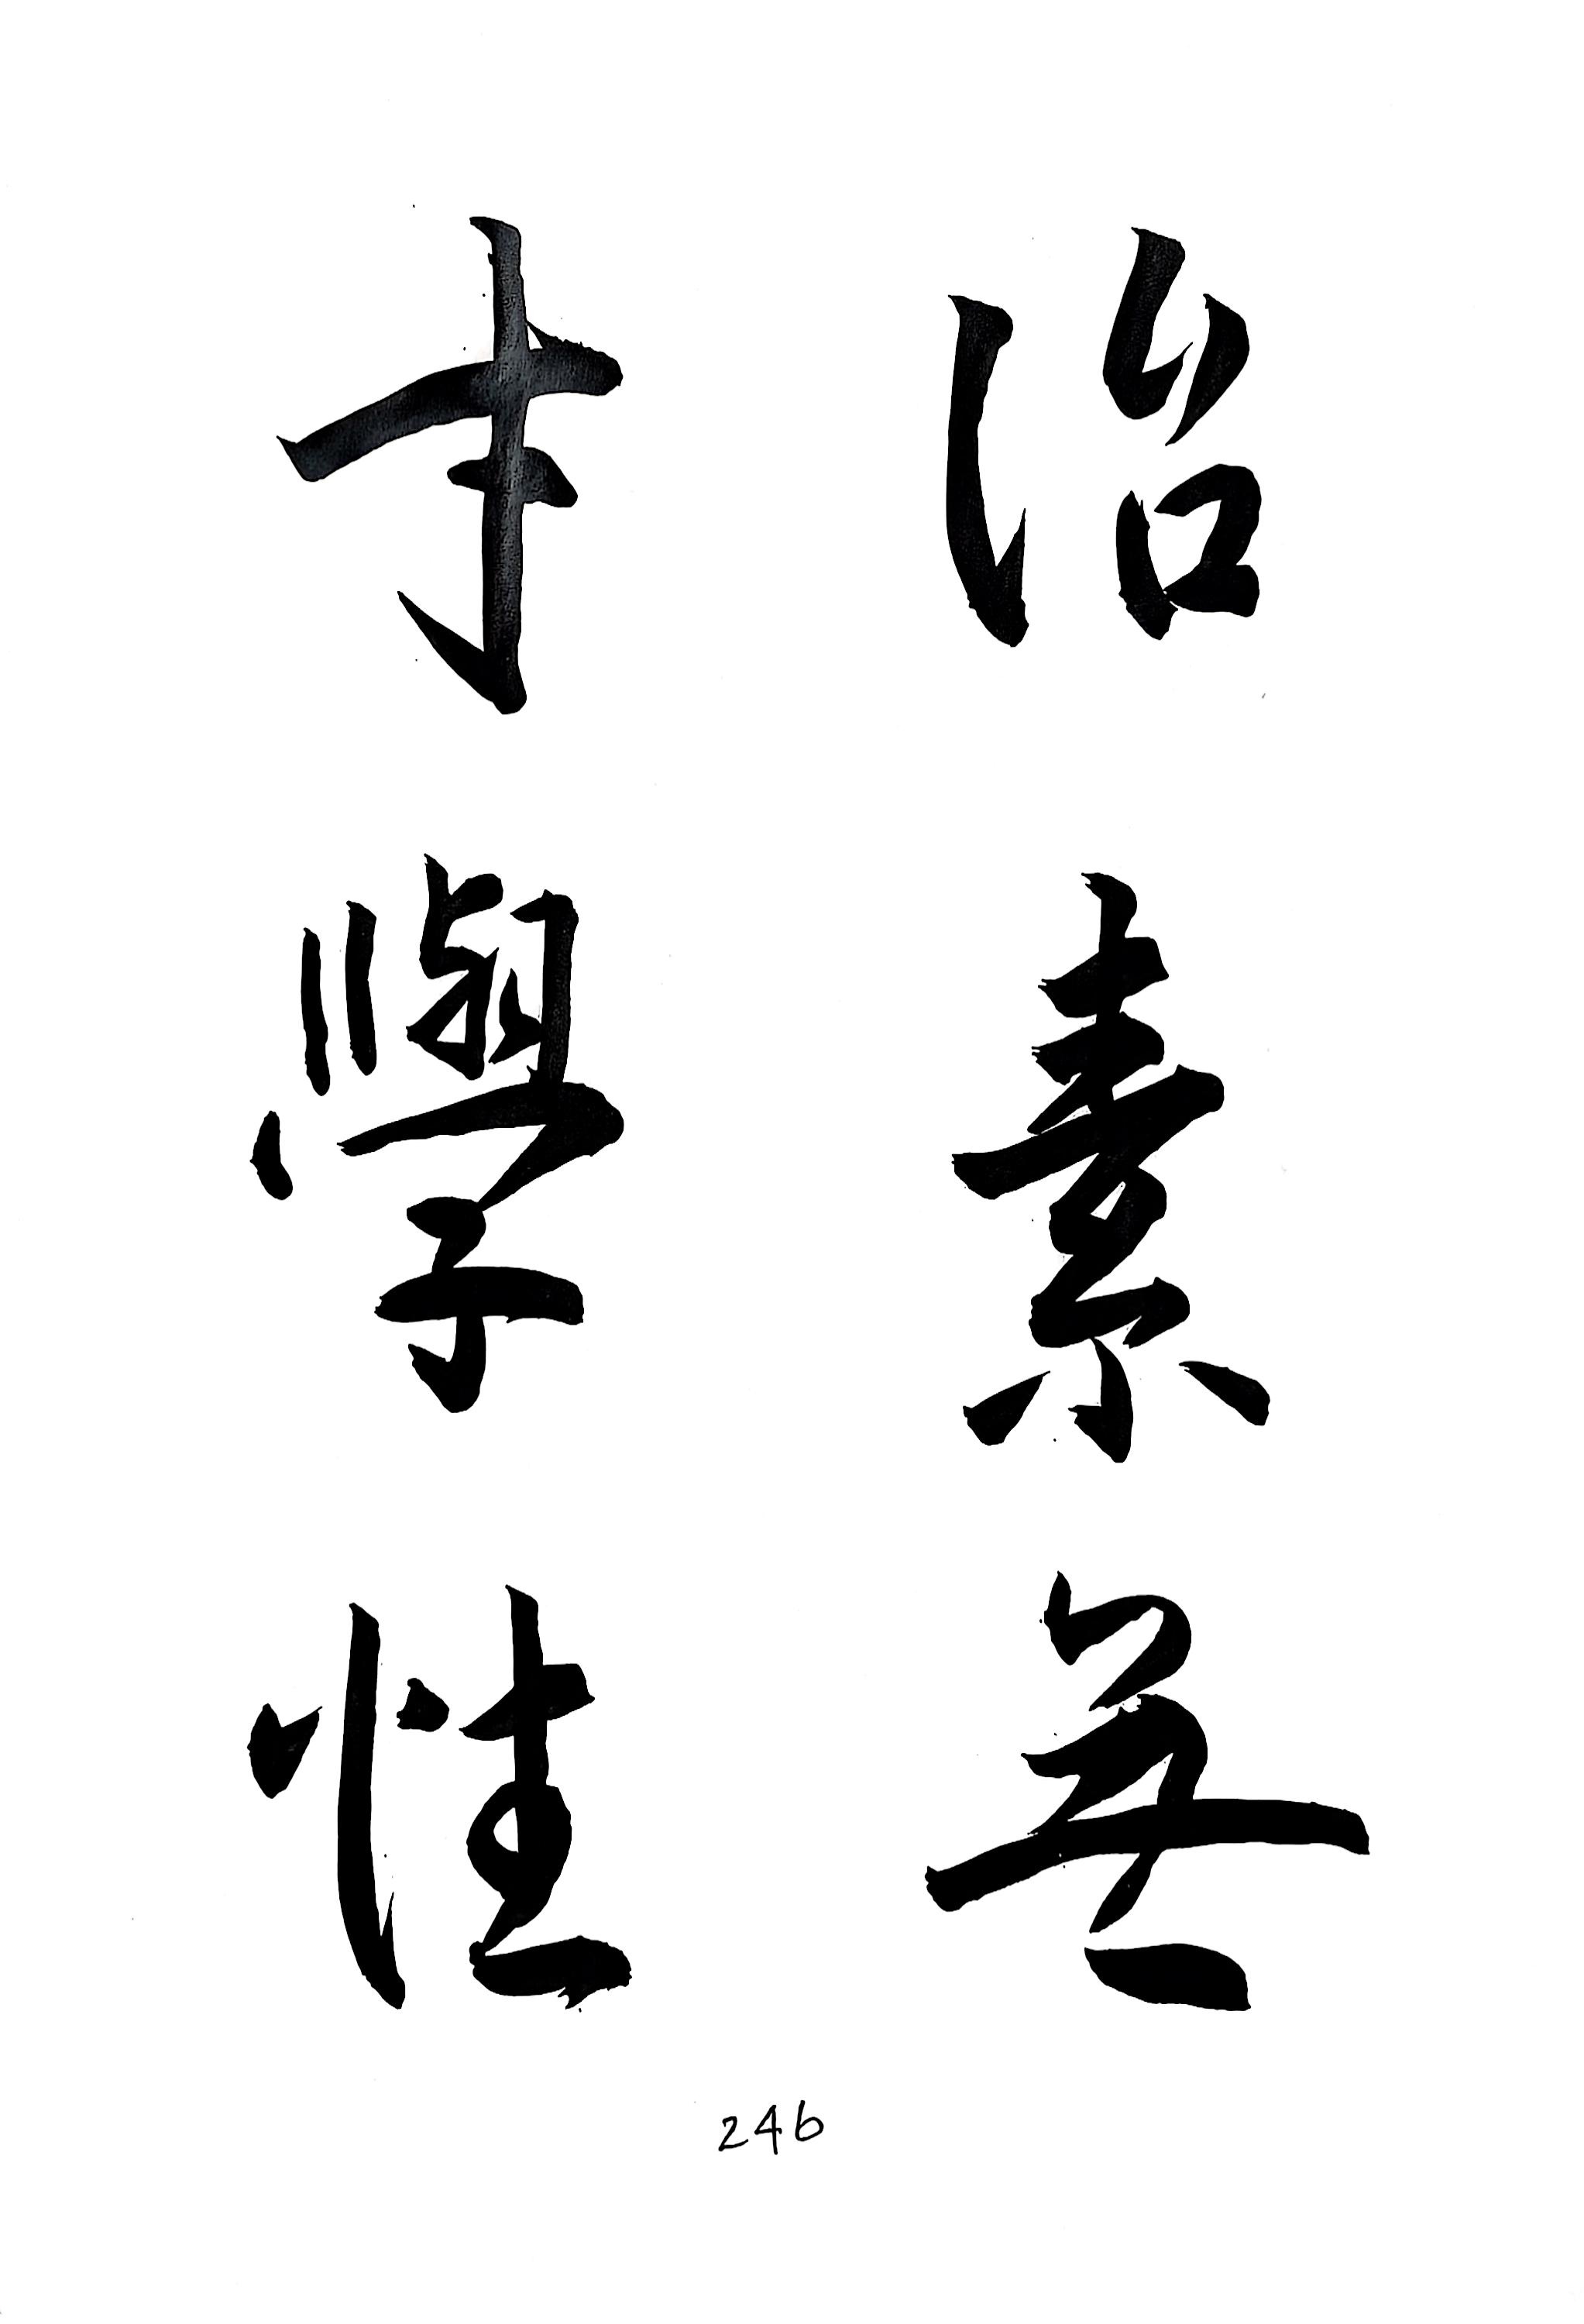 治素無
才學性
246